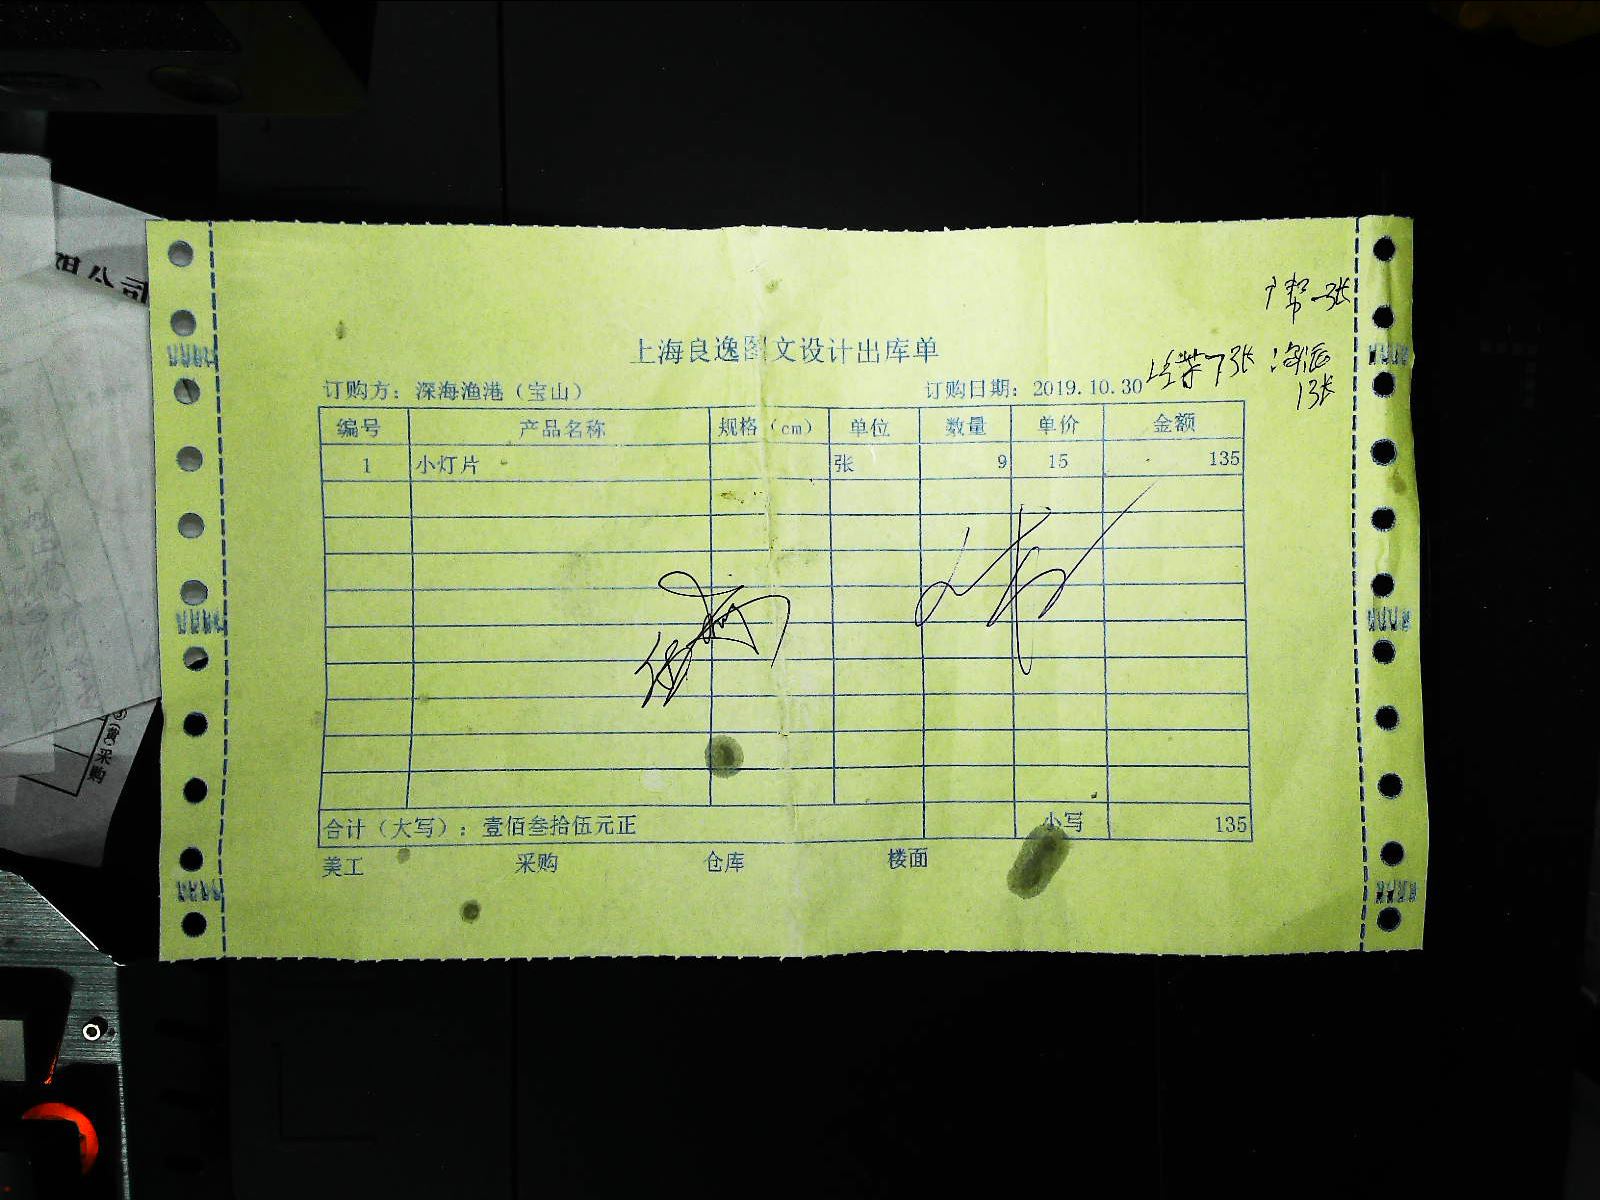 广帮一张
上海良逸图文设计出库单
7张 海派
1张
订购方：深海渔港（宝山） 订购日期：2019.10.30
编号 产品名称 规格（cm） 单位 数量 单价 金额
1 小灯片 张 9 15 135
合计（大写）：壹佰叁拾伍元正 小写 135
美工 采购 仓库 楼面
公司
(黄)采购